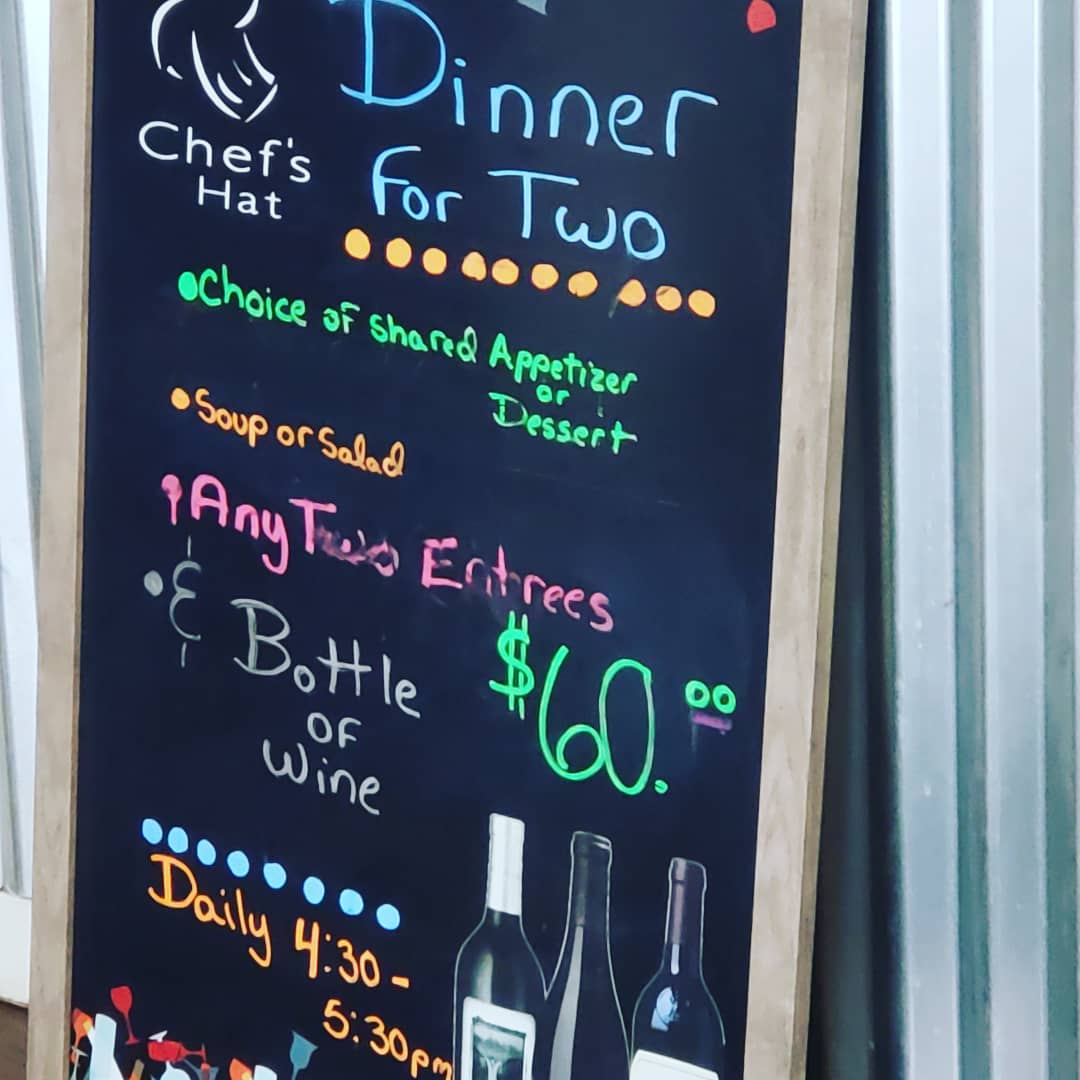 Chef's
Hat
Dinner
For Two
Choice of shared Appetizer
or
Dessert
Soup or Salad
Any Two Entrees
& Bottle
OF
Wine
$60.00
Daily 4:30-
5:30pm